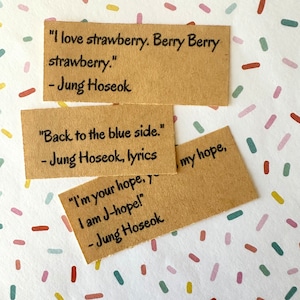 "I love strawberry. Berry Berry
strawberry."
- Jung Hoseok
"Back to the blue side."
- Jung Hoseok, lyrics
"I'm your hope, my hope,
I am J-hope!"
- Jung Hoseok